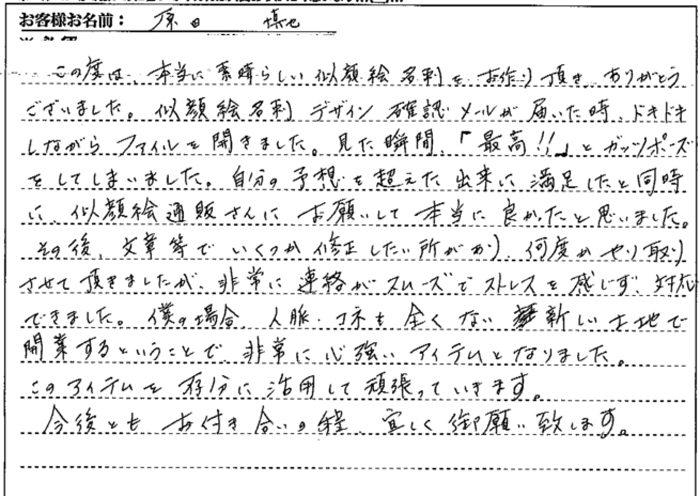 お客様お名前： 原田 博也
この度は、本当に素晴らしい似顔絵名刺をお作り頂き、ありがとう
ございました。似顔絵名刺デザイン確認メールが届いた時、ドキドキ
しながらファイルを開きました。見た瞬間、「最高!!」とガッツポーズ
をしてしまいました。自分の予想を超えた出来に満足したと同時
に、似顔絵通販さんにお願いして本当に良かったと思いました。
その後、文章等でいくつか修正したい所があり、何度かやり取り
させて頂きましたが、非常に連絡がスムーズでストレスを感じず、対応
できました。僕の場合、人脈・コネも全くない新しい土地で
開業するということで、非常に心強いアイテムとなりました。
このアイテムを存分に活用して頑張っていきます。
今後ともお付き合いの程、宜しく御願い致します。